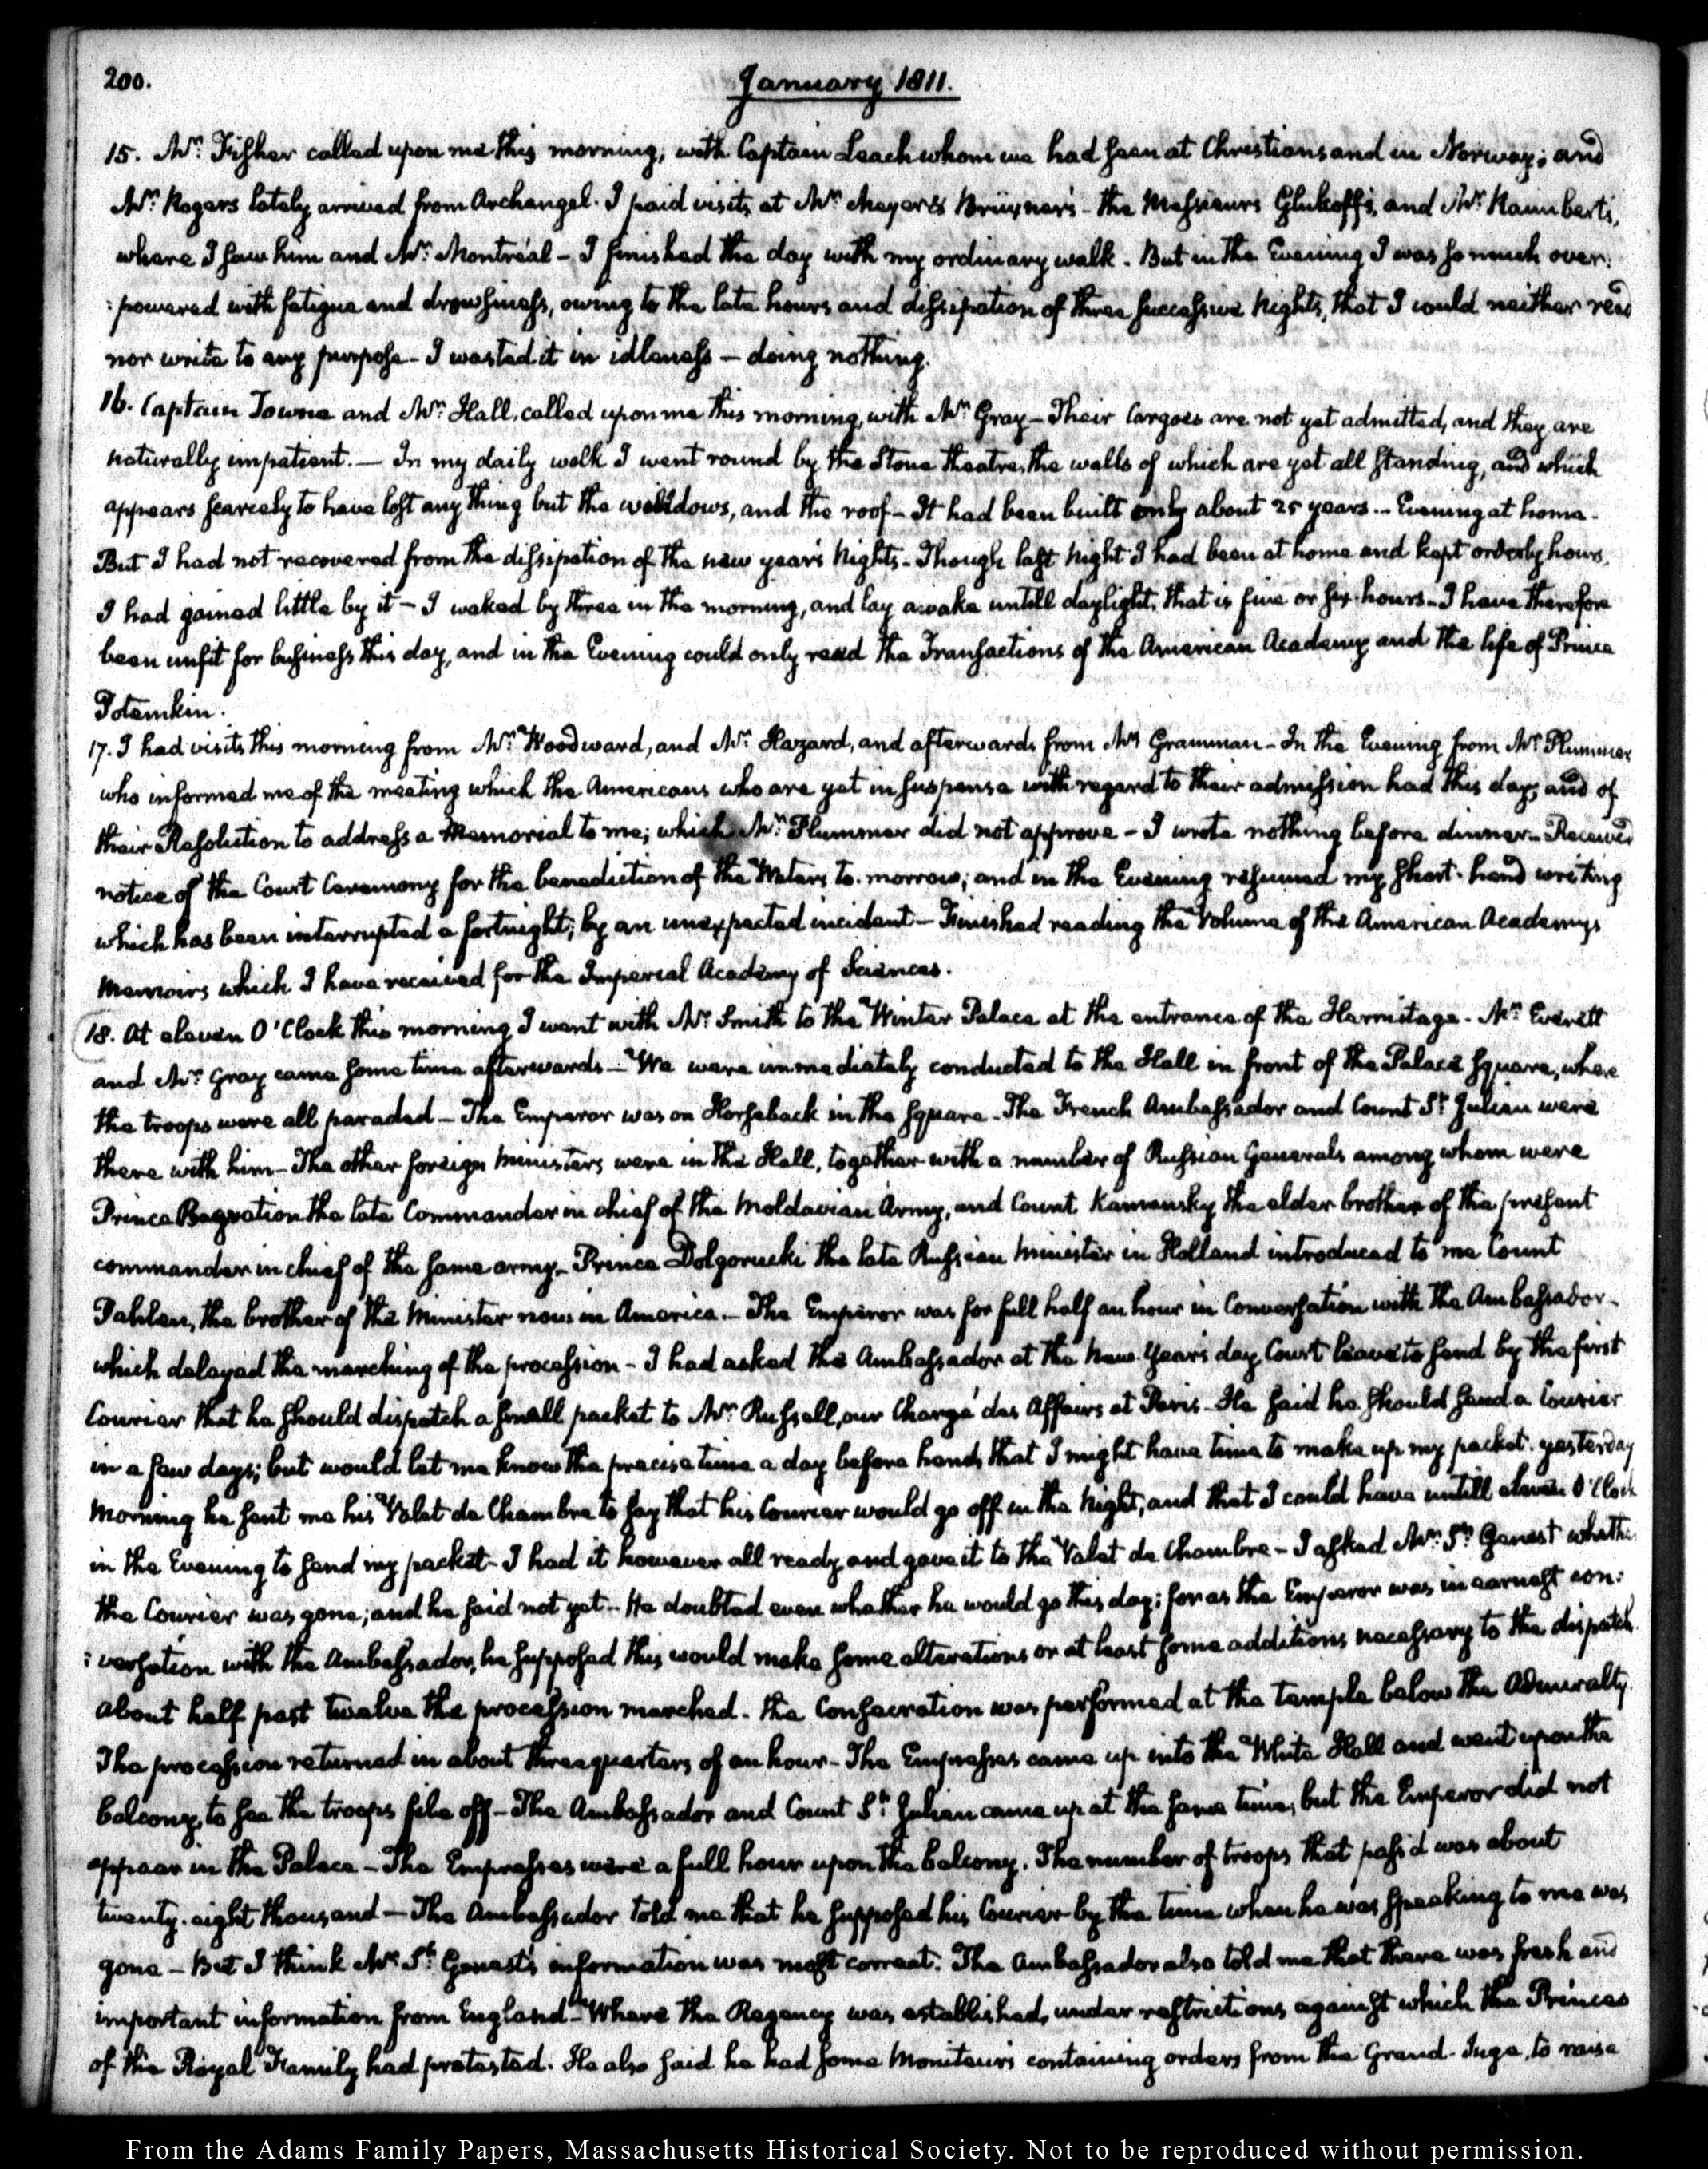 200.
January 1811.
15. Mr. Fisher called upon me this morning, with Captain Leach whom we had seen at Christiansand in Norway; and
Mr. Rogers lately arrived from Archangel. I paid visits at Mr. Meyer & Brüxner's - the Messieurs Glukoff's, and Mr. Raimbert's,
where I saw him and Mr. Montréal - I finished the day with my ordinary walk. But in the Evening I was so much over:
:powered with fatigue and drowsiness, owing to the late hours and dissipation of three successive Nights, that I could neither read
nor write to any purpose - I wasted it in idleness - doing nothing.
16. Captain Towne and Mr. Hall, called upon me this morning, with Mr. Gray - Their Cargoes are not yet admitted, and they are
naturally impatient. — In my daily walk I went round by the Stone theatre, the walls of which are yet all standing, and which
appears scarcely to have lost any thing but the windows, and the roof - It had been built only about 25 years. - Evening at home -
But I had not recovered from the dissipation of the new year's Nights - Though last Night I had been at home and kept orderly hours,
I had gained little by it - I waked by three in the morning, and lay awake untill daylight, that is five or six hours - I have therefore
been unfit for business this day, and in the Evening could only read the Transactions of the American Academy and the life of Prince
Potemkin.
17. I had visits this morning from Mr. Woodward, and Mr. Hazard, and afterwards from Mr. Gramman - In the Evening from Mr. Plummer
who informed me of the meeting which the Americans who are yet in suspense with regard to their admission had this day, and of
their Resolution to address a Memorial to me; which Mr. Plummer did not approve - I wrote nothing before dinner - Received
notice of the Court Ceremony for the benediction of the Waters to-morrow; and in the Evening resumed my short-hand writing
which has been interrupted a fortnight, by an unexpected incident - Finished reading the Volume of the American Academy's
Memoirs which I have received for the Imperial Academy of Sciences.
18. At eleven O'Clock this morning I went with Mr. Smith to the Winter Palace at the entrance of the Hermitage. Mr. Everett
and Mr. Gray came some time afterwards - We were immediately conducted to the Hall in front of the Palace Square, where
the troops were all paraded - The Emperor was on Horseback in the Square - The French Ambassador and Count St. Julian were
there with him - The other foreign Ministers were in the Hall, together with a number of Russian Generals among whom were
Prince Bagration the late Commander in chief of the Moldavian Army, and Count Kamensky the elder brother of the present
commander in chief of the same army - Prince Dolgorucki the late Russian Minister in Holland introduced to me Count
Pahlen, the brother of the Minister now in America. - The Emperor was for full half an hour in Conversation with the Ambassador -
which delayed the marching of the procession - I had asked the Ambassador at the New Year's day Court leave to send by the first
Courier that he should dispatch a small packet to Mr. Russell, our Chargé des Affairs at Paris - He said he should send a Courier
in a few days; but would let me know the precise time a day before hand, that I might have time to make up my packet. yesterday
Morning he sent me his Valet de Chambre to say that his Courier would go off in the Night, and that I could have untill eleven O'Clock
in the Evening to send my packet - I had it however all ready and gave it to the Valet de Chambre - I asked Mr. St. Genest whether
the Courier was gone; and he said not yet - He doubted even whether he would go this day; for as the Emperor was in earnest con:
:versation with the Ambassador, he supposed this would make some alterations or at least some additions necessary to the dispatch.
about half past twelve the procession marched. The Consecration was performed at the temple below the Admiralty.
The procession returned in about three quarters of an hour - The Empresses came up into the White Hall and went upon the
balcony, to see the troops file off - The Ambassador and Count St. Julian came up at the same time, but the Emperor did not
appear in the Palace - The Empresses were a full hour upon the balcony. The number of troops that pass'd was about
twenty-eight thousand — The Ambassador told me that he supposed his Courier by the time when he was speaking to me was
gone - But I think Mr. St. Genest's information was most correct. The Ambassador also told me that there was fresh and
important information from England - Where the Regency was established, under restrictions against which the Princes
of the Royal Family had protested. He also said he had some Moniteurs containing orders from the Grand-Juge, to raise
From the Adams Family Papers, Massachusetts Historical Society. Not to be reproduced without permission.